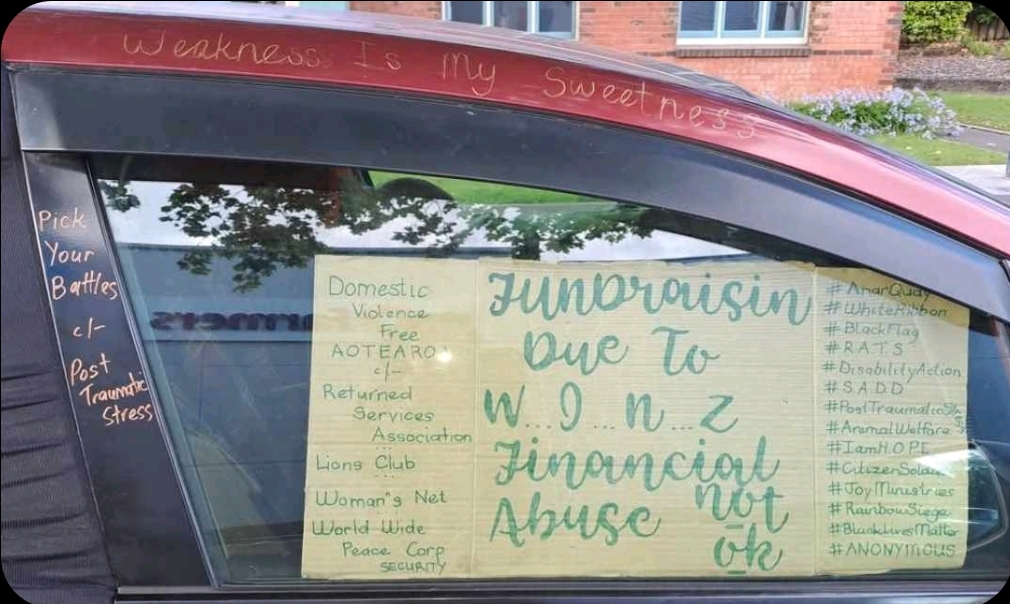 Weakness Is My Sweetness
Pick
Your
Battles
c/-
Post
Traumatic
Stress
Domestic
Violence
Free
AOTEAROA
c/-
Returned
Services
Association
Lions Club
Woman's Net
World Wide
Peace Corp
SECURITY
Fundraisin
Due To
W...I...n...z
Financial
Abuse not
ok
#AnarQuay
#WhiteRibbon
#BlackFlag
#R.A.T.S
#DisabilityAction
#S.A.D.D
#PostTraumatic
#AnimalWelfare
#IamH.O.P.E
#CitizenSoldier
#JoyMinistries
#RainbowSiege
#BlackLivesMatter
#ANONYMOUS